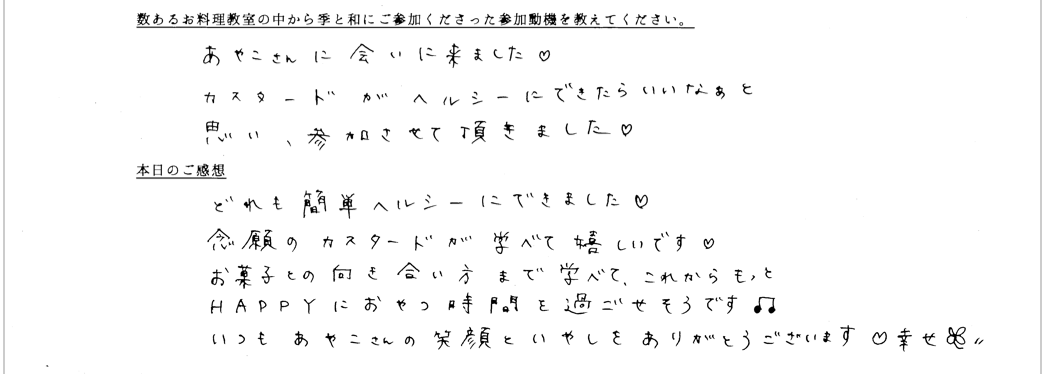 数あるお料理教室の中から季と和にご参加くださった参加動機を教えてください。
あやこさんに会いに来ました♡
カスタードがヘルシーにできたらいいなぁと
思い、参加させて頂きました♡
本日のご感想
どれも簡単ヘルシーにできました♡
念願のカスタードが学べて嬉しいです♡
お菓子との向き合い方まで学べて、これからもっと
HAPPYにおやつ時間を過ごせそうです♫
いつもあやこさんの笑顔といやしをありがとうございます♡幸せ〃